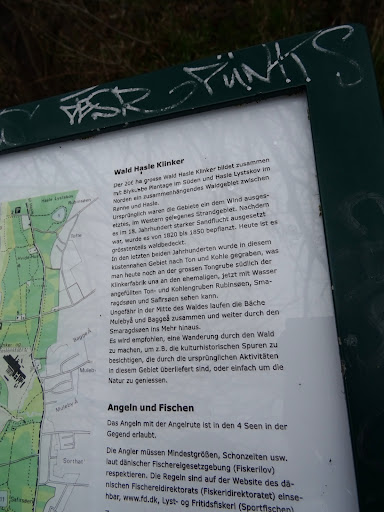 PÜN!TS
Wald Hasle Klinker
Der 201 ha grosse Wald Hasle Klinker bildet zusammen
mit Blykobbe Plantage im Süden und Hasle Lystskov im
Norden ein zusammenhängendes Waldgebiet zwischen
Rønne und Hasle.
Ursprünglich waren die Gebiete ein dem Wind ausges-
etztes, im Western gelegenes Strandgebiet. Nachdem
es im 18. Jahrhundert starker Sandflucht ausgesetzt
war, wurde es von 1820 bis 1850 bepflanzt. Heute ist es
grösstenteils waldbedeckt.
In den letzten beiden Jahrhunderten wurde in diesem
küstennahen Gebiet nach Ton und Kohle gegraben, was
man heute noch an der grossen Tongrube südlich der
Klinkerfabrik und an den ehemaligen, jetzt mit Wasser
angefüllten Ton- und Kohlengruben Rubinsøen, Sma-
ragdsøen und Safirsøen sehen kann.
Ungefähr in der Mitte des Waldes laufen die Bäche
Mulebyå und Baggeå zusammen und weiter durch den
Smaragdsøen ins Mehr hinaus.
Es wird empfohlen, eine Wanderung durch den Wald
zu machen, um z.B. die kulturhistorischen Spuren zu
besichtigen, die durch die ursprünglichen Aktivitäten
in diesem Gebiet überliefert sind, oder einfach um die
Natur zu geniessen.
Angeln und Fischen
Das Angeln mit der Angelrute ist in den 4 Seen in der
Gegend erlaubt.
Die Angler müssen Mindestgrößen, Schonzeiten usw.
laut dänischer Fischereigesetzgebung (Fiskerilov)
respektieren. Die Regeln sind auf der Website des dä-
nischen Fischereidirektorats (Fiskeridirektoratet) einse-
hbar, www.fd.dk, Lyst- og Fritidsfiskeri (Sportfischen)
Hasle Lystskov
Baggeå
Muleby
Muleby Å
Sorthat